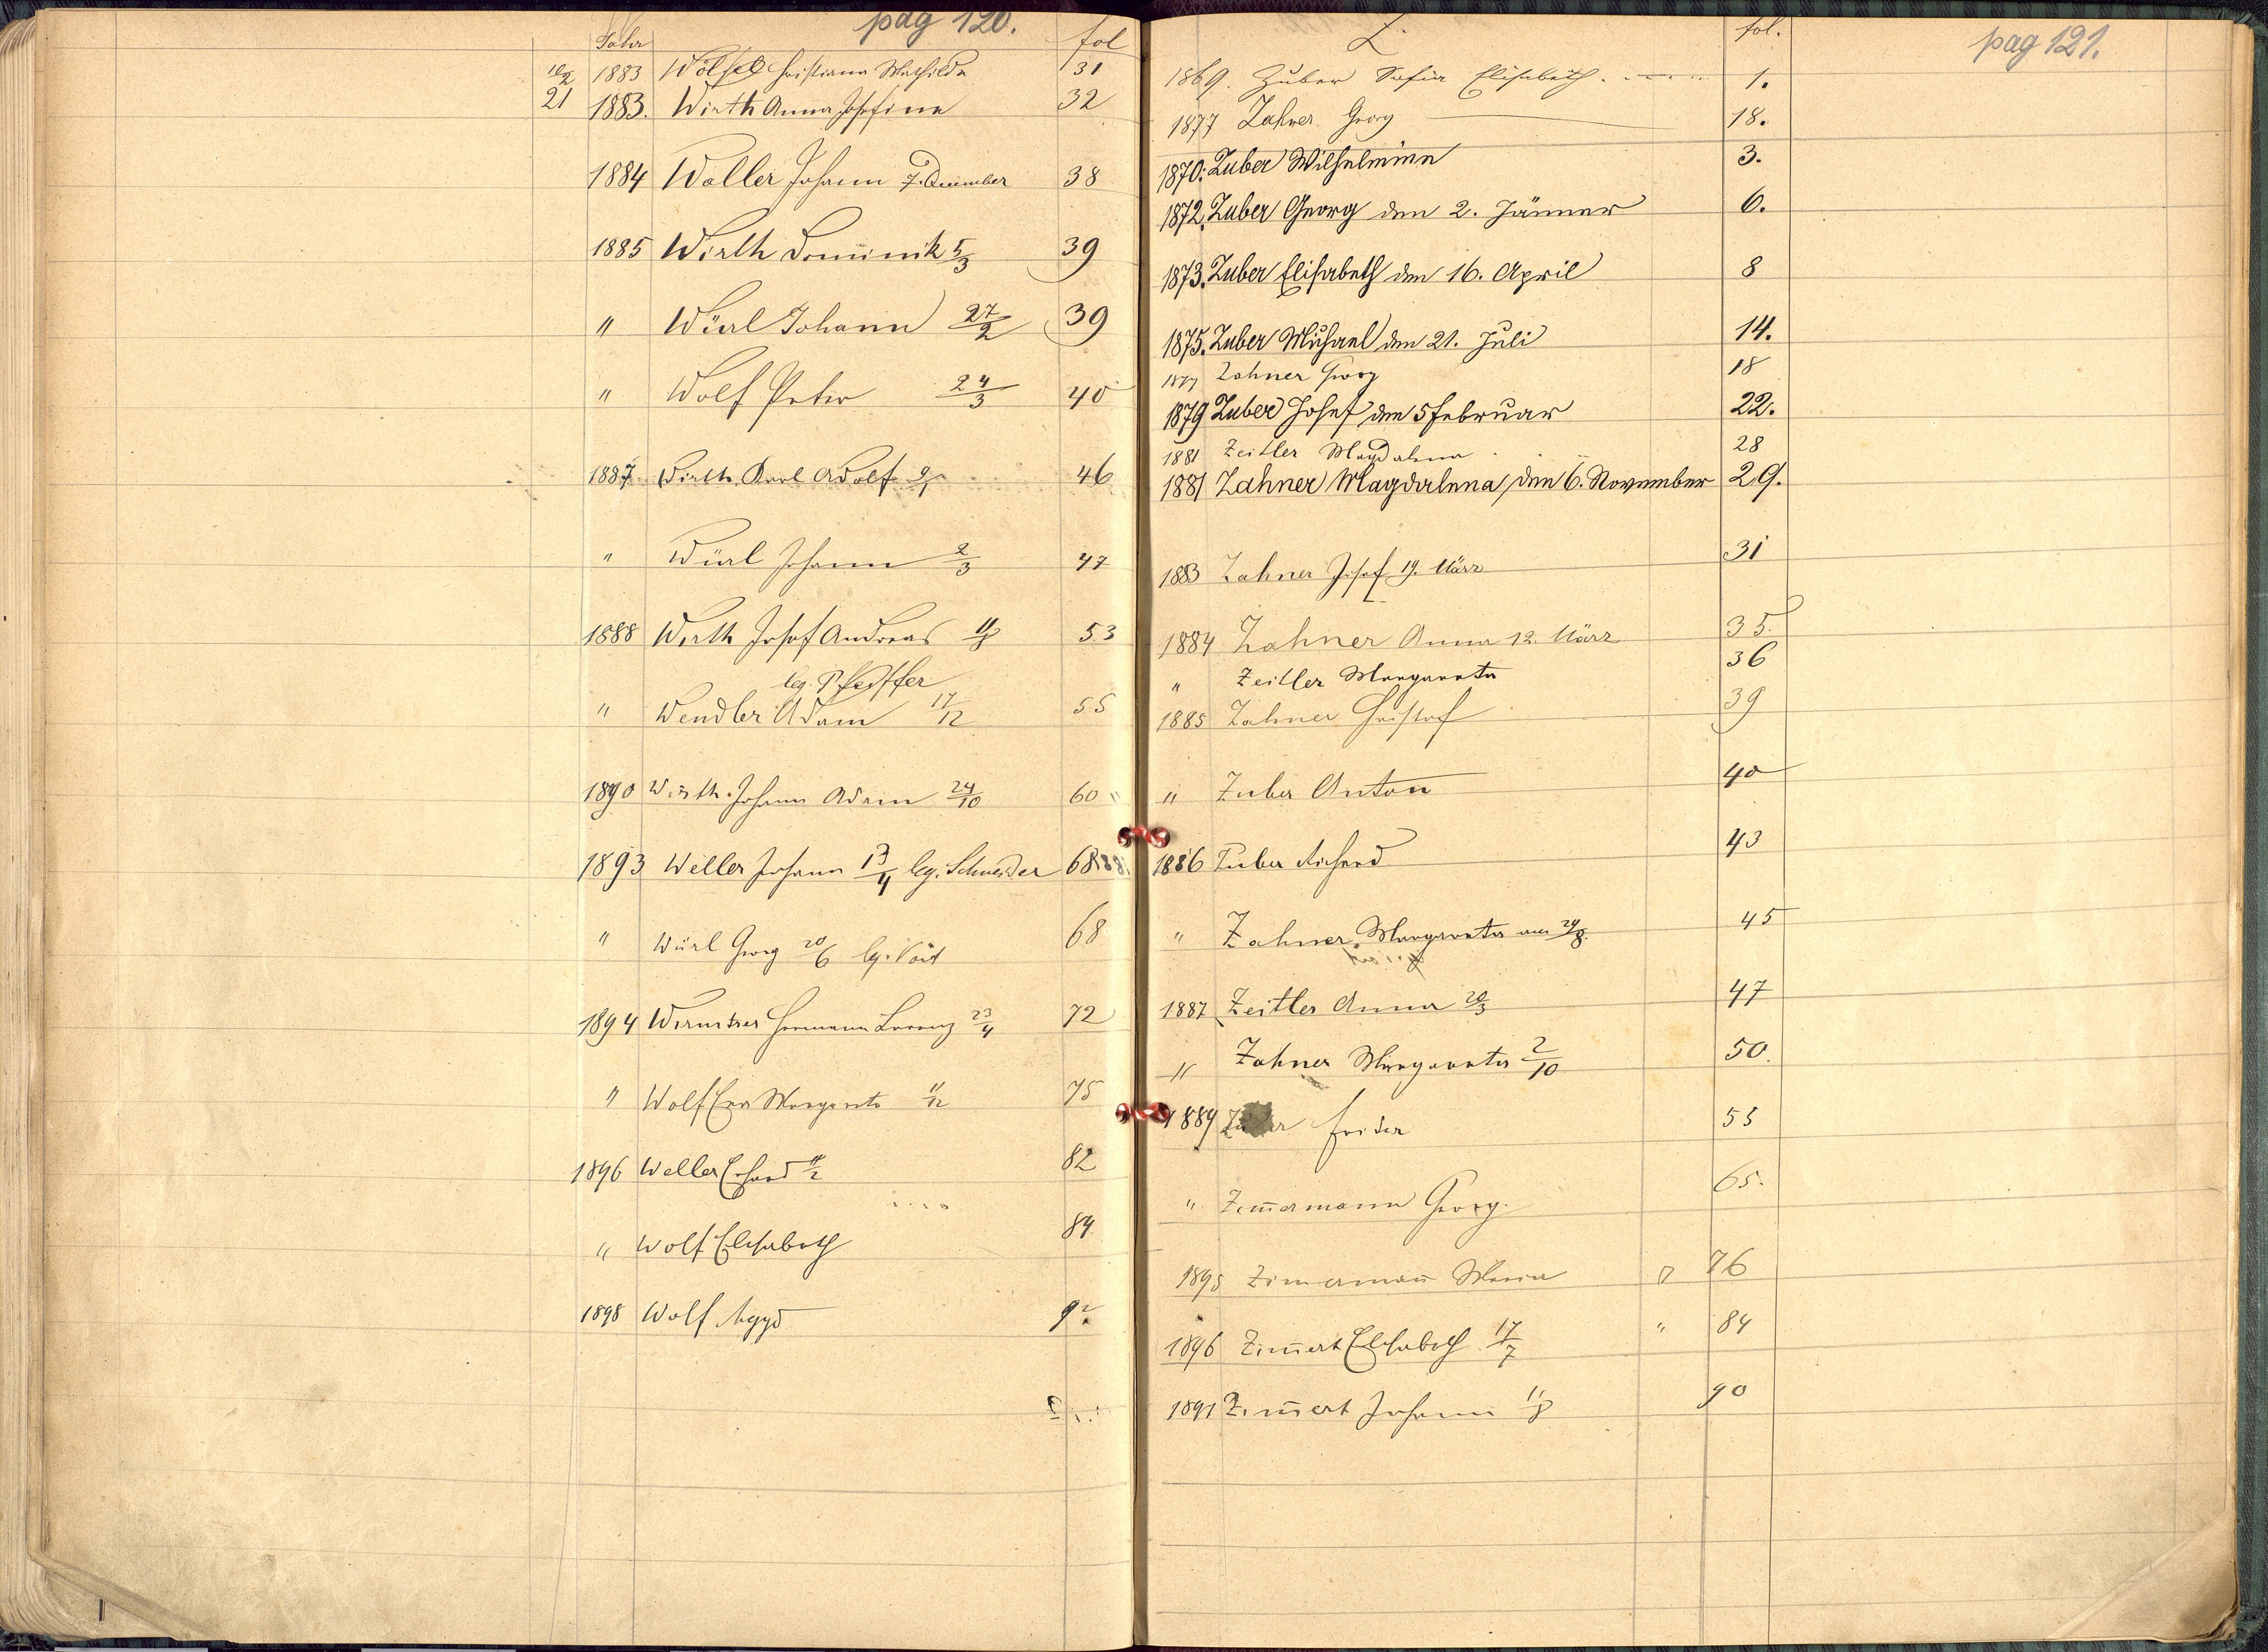 pag 120.
Jahr fol
10/2 1883 Wölfel Christiana Mathilda 31
21 1883. Wirth Anna Josefina 32
1884 Woller Johann 7. December 38
1885 Wirth Dominik 5/3 39
" Würl Johann 27/2 39
" Wolf Peter 24/3 40
1887 Wirth Karl Adolf 46
" Würl Johann 2/3 47
1888 Wirth Josef Andreas 11/8 53
leg. Pfeiffer
" Wendler Adam 17/12 55
1890 Wirth Johann Adam 24/10 60
1893 Weller Johann 13/4 leg. Schneider 68
" Würl Georg 20/6 leg. Voit 68
1894 Hermann Lorenz 23/4 72
" Wolf Eva Margareta 11/12 75
1896 Weller Erhard 11/2 82
" Wolf Elisabeth 84
1898 Wolf Aegyd
pag 121.
Z fol.
1869. Zuber Sofia Elisabeth. 1.
1877 Zahner Georg 18.
1870. Zuber Wilhelmine 3.
1872. Zuber Georg den 2. Jänner 6.
1873. Zuber Elisabeth den 16. April 8
1875. Zuber Michael den 21. Juli 14.
1877 Zahner Georg 18
1879 Zuber Josef den 5 Februar 22.
1881 Zeitler Magdalena 28
1881 Zahner Magdalena, den 6. November 29.
1883 Zahner Josef 19. März 31
1884 Zahner Anna 12. März 35.
" Zeitler Margareta 36
1885 Zahner Christof 39
" Zuber Anton 40
1886 Zuber Richard 43
" Zahner Margareta am 24/8. 45
1887 Zeitler Anna 20/3 47
" Zahner Margareta 2/10 50.
1889 Frieda 55
" Zim̅ermann Georg. 65.
1895 Zimerman̅ Maria 76
1896 Zim̅ert Elisabeth 17/7 " 84
1897 Zim̅ert Johann 11/8 90